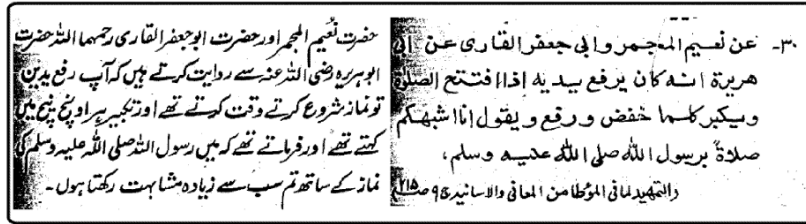 ۳۰- عن نعیم المجمر وابی جعفر القاری عن ابی
هریرة انه کان یرفع یدیه اذا افتتح الصلاة
ویکبر کلما خفض ورفع ویقول انا اشبهکم
صلاة برسول الله صلی الله علیه وسلم،
(التمهید لما فی المؤطا من المعانی والاسانید ج۹ ص۲۱۵
حضرت نعیم المجمر اور حضرت ابو جعفر القاری رحمہما اللہ حضرت
ابو ہریرہ رضی اللہ عنہ سے روایت کرتے ہیں کہ آپ رفع یدین
تو نماز شروع کرتے وقت کرتے تھے اور تکبیر ہر اونچ نیچ میں
کہتے تھے اور فرماتے تھے کہ میں رسول اللہ صلی اللہ علیہ وسلم کی
نماز کے ساتھ تم سب سے زیادہ مشابہت رکھتا ہوں۔